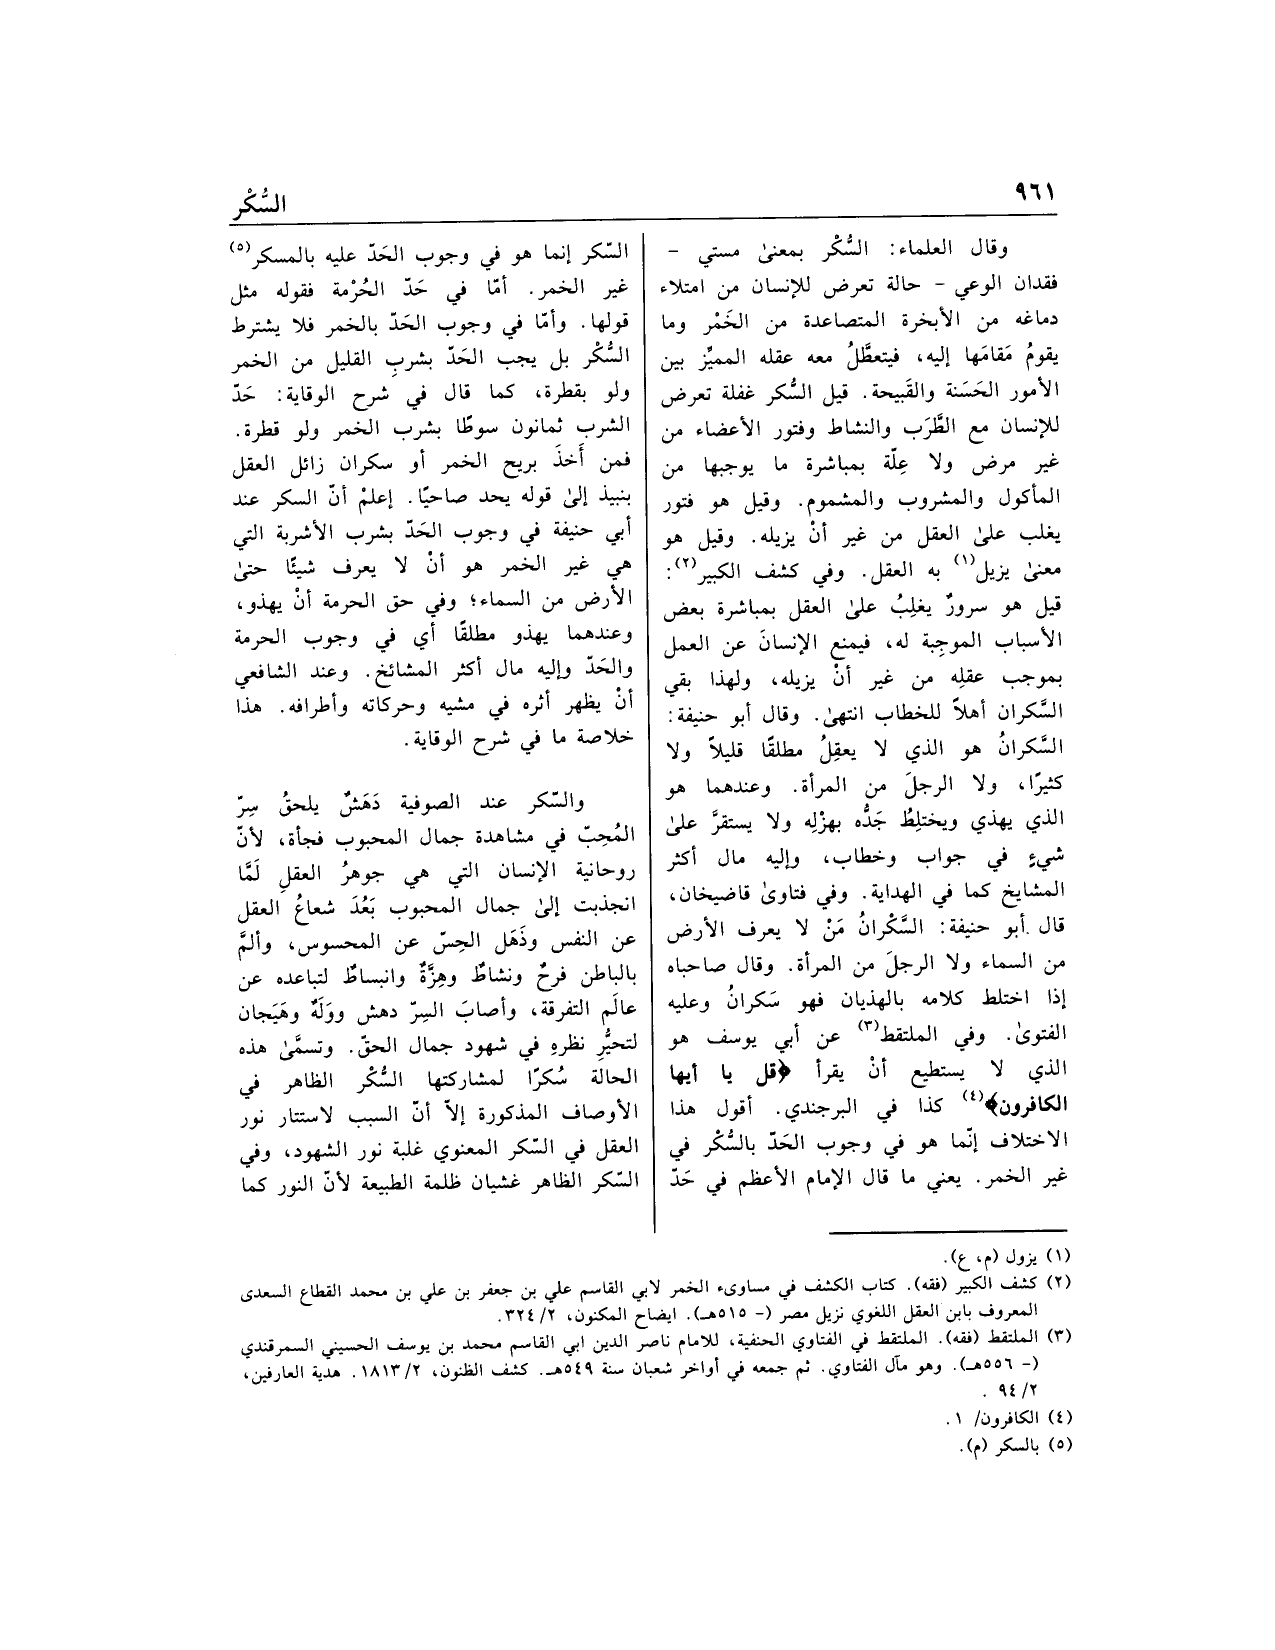 ٩٦١
السُّكْر
وقال العلماء: السُّكْر بمعنىٰ مستي –
فقدان الوعي – حالة تعرض للإنسان من امتلاء
دماغه من الأبخرة المتصاعدة من الخَمْر وما
يقومُ مَقامَها إليه، فيتعطَّلُ معه عقله المميِّز بين
الأمور الحَسَنة والقَبيحة. قيل السُّكر غفلة تعرض
للإنسان مع الطَّرَب والنشاط وفتور الأعضاء من
غير مرض ولا عِلّة بمباشرة ما يوجبها من
المأكول والمشروب والمشموم. وقيل هو فتور
يغلب علىٰ العقل من غير أنْ يزيله. وقيل هو
معنىٰ يزيل(١) به العقل. وفي كشف الكبير(٢):
قيل هو سرورٌ يغلِبُ علىٰ العقل بمباشرة بعض
الأسباب الموجِبة له، فيمنع الإنسانَ عن العمل
بموجب عقلِه من غير أنْ يزيله، ولهذا بقي
السَّكران أهلاً للخطاب انتهىٰ. وقال أبو حنيفة:
السَّكرانُ هو الذي لا يعقِلُ مطلقًا قليلاً ولا
كثيرًا، ولا الرجلَ من المرأة. وعندهما هو
الذي يهذي ويختلِطُ جَدُّه بهزْلِه ولا يستقرَّ علىٰ
شيءٍ في جواب وخطاب، وإليه مال أكثر
المشايخ كما في الهداية. وفي فتاوىٰ قاضيخان،
قال أبو حنيفة: السَّكْرانُ مَنْ لا يعرف الأرض
من السماء ولا الرجلَ من المرأة. وقال صاحباه
إذا اختلط كلامه بالهذيان فهو سَكرانُ وعليه
الفتوىٰ. وفي الملتقط(٣) عن أبي يوسف هو
الذي لا يستطيع أنْ يقرأ ﴿قل يا أيها
الكافرون﴾(٤) كذا في البرجندي. أقول هذا
الاختلاف إنّما هو في وجوب الحَدّ بالسُّكْر في
غير الخمر. يعني ما قال الإمام الأعظم في حَدّ
السّكر إنما هو في وجوب الحَدّ عليه بالمسكر(٥)
غير الخمر. أمّا في حَدّ الحُرْمة فقوله مثل
قولها. وأمّا في وجوب الحَدّ بالخمر فلا يشترط
السُّكْر بل يجب الحَدّ بشربِ القليل من الخمر
ولو بقطرة، كما قال في شرح الوقاية: حَدّ
الشرب ثمانون سوطًا بشرب الخمر ولو قطرة.
فمن أَخذَ بريح الخمر أو سكران زائل العقل
بنبيذ إلىٰ قوله يحد صاحيًا. إعلمْ أنّ السكر عند
أبي حنيفة في وجوب الحَدّ بشرب الأشربة التي
هي غير الخمر هو أنْ لا يعرف شيئًا حتىٰ
الأرض من السماء؛ وفي حق الحرمة أنْ يهذو،
وعندهما يهذو مطلقًا أي في وجوب الحرمة
والحَدّ وإليه مال أكثر المشائخ. وعند الشافعي
أنْ يظهر أثره في مشيه وحركاته وأطرافه. هذا
خلاصة ما في شرح الوقاية.
والسّكر عند الصوفية دَهَشٌ يلحقُ سِرّ
المُحِبّ في مشاهدة جمال المحبوب فجأة، لأنّ
روحانية الإنسان التي هي جوهرُ العقلِ لَمَّا
انجذبت إلىٰ جمال المحبوب بَعُدَ شعاعُ العقل
عن النفس وذَهَل الحِسّ عن المحسوس، وألمَّ
بالباطن فرحٌ ونشاطٌ وهِزَّةٌ وانبساطٌ لتباعده عن
عالَم التفرقة، وأصابَ السِرّ دهش ووَلَهٌ وهَيَجان
لتحيُّرِ نظرهِ في شهود جمال الحقّ. وتسمَّىٰ هذه
الحالة سُكرًا لمشاركتها السُّكْر الظاهر في
الأوصاف المذكورة إلاّ أنّ السبب لاستتار نور
العقل في السّكر المعنوي غلبة نور الشهود، وفي
السّكر الظاهر غشيان ظلمة الطبيعة لأنّ النور كما
(١) يزول (م، ع).
(٢) كشف الكبير (فقه). كتاب الكشف في مساوىء الخمر لابي القاسم علي بن جعفر بن علي بن محمد القطاع السعدى
المعروف بابن العقل اللغوي نزيل مصر (– ٥١٥هـ). ايضاح المكنون، ٢/ ٣٢٤.
(٣) الملتقط (فقه). الملتقط في الفتاوي الحنفية، للامام ناصر الدين ابي القاسم محمد بن يوسف الحسيني السمرقندي
(– ٥٥٦هـ). وهو مآل الفتاوي. ثم جمعه في أواخر شعبان سنة ٥٤٩هـ. كشف الظنون، ٢/ ١٨١٣. هدية العارفين،
٢/ ٩٤ .
(٤) الكافرون/ ١ .
(٥) بالسكر (م).